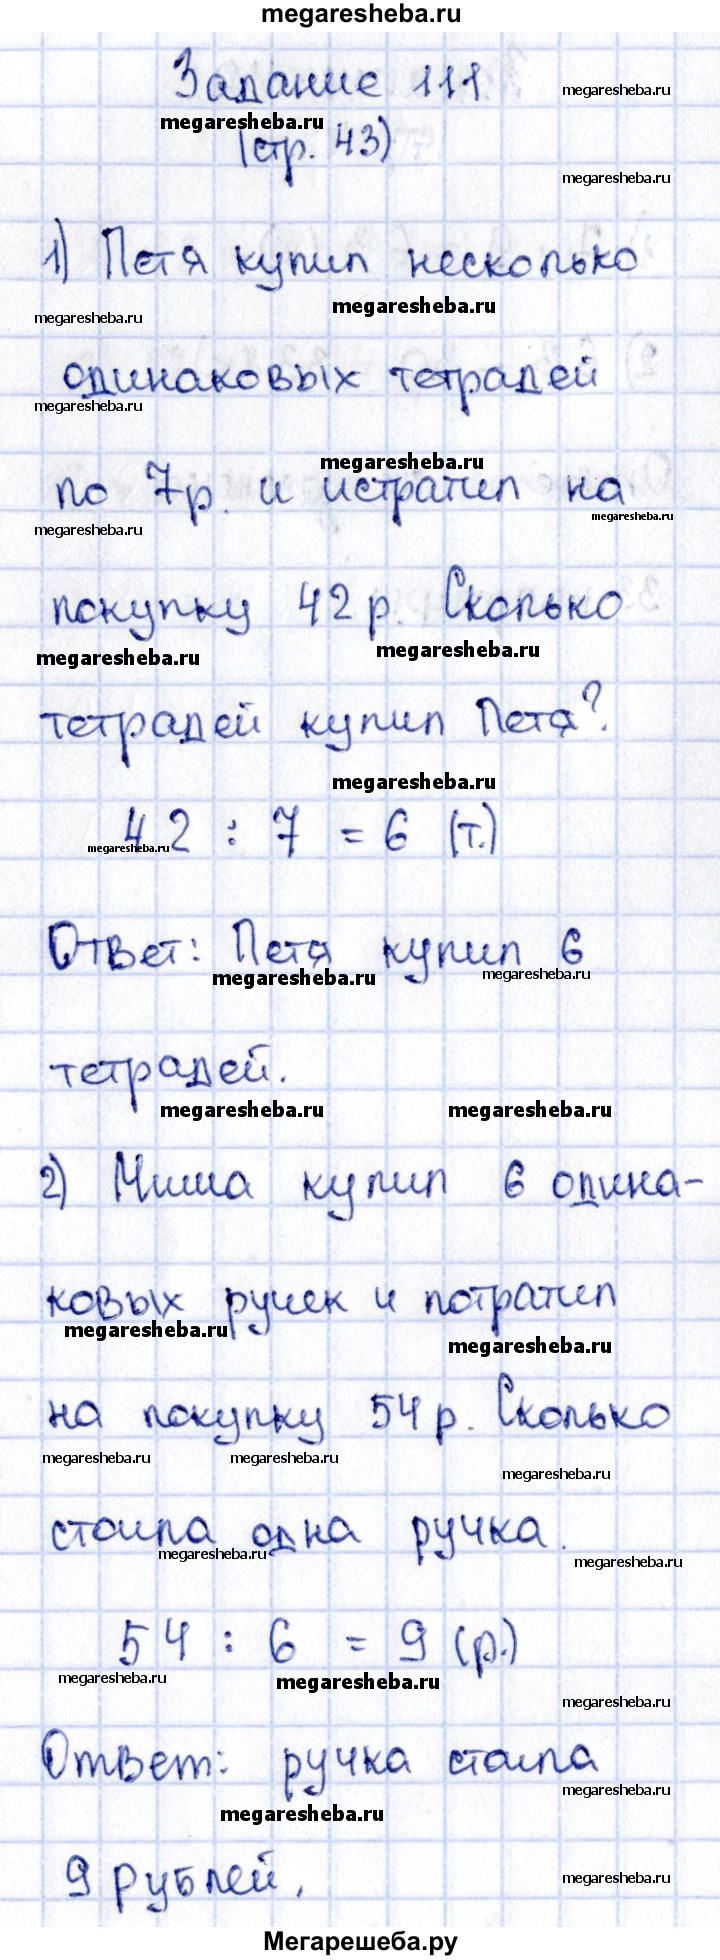 megaresheba.ru
Задание 111
megaresheba.ru
megaresheba.ru
(стр. 43)
megaresheba.ru
1) Петя купил несколько
megaresheba.ru
megaresheba.ru
одинаковых тетрадей
megaresheba.ru
megaresheba.ru
по 7р. и истратил на
megaresheba.ru
megaresheba.ru
покупку 42р. Сколько
megaresheba.ru
megaresheba.ru
тетрадей купил Петя?
megaresheba.ru
42 : 7 = 6 (т.)
megaresheba.ru
Ответ: Петя купил 6
megaresheba.ru
megaresheba.ru
тетрадей.
megaresheba.ru megaresheba.ru
2) Миша купил 6 одина-
ковых ручек и потратил
megaresheba.ru
megaresheba.ru
на покупку 54р. Сколько
megaresheba.ru megaresheba.ru
megaresheba.ru
стоила одна ручка.
megaresheba.ru
megaresheba.ru
54 : 6 = 9 (р.)
megaresheba.ru
megaresheba.ru
megaresheba.ru
Ответ: ручка стоила
megaresheba.ru
megaresheba.ru
9 рублей.
megaresheba.ru
Мегарешеба.ру